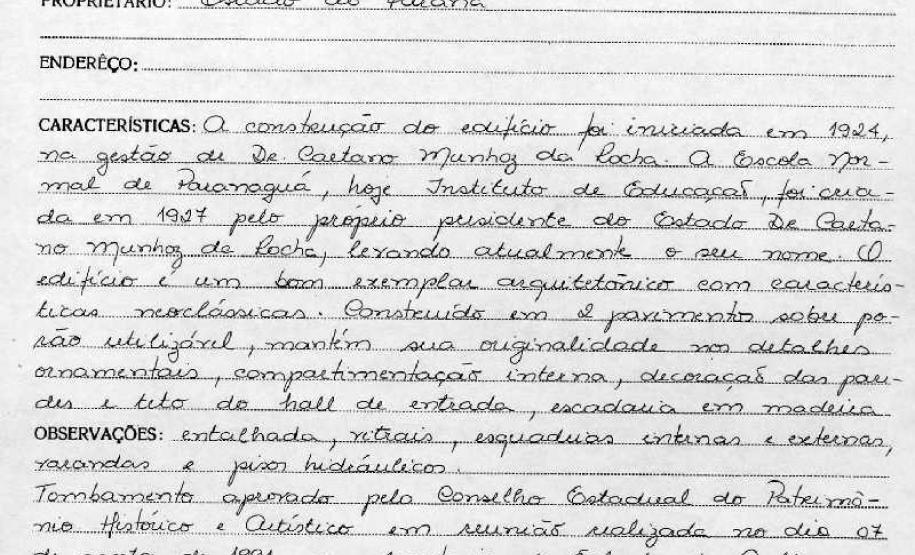 PROPRIETÁRIO: Estado do Paraná
ENDERÊÇO:
CARACTERÍSTICAS: A construção do edifício foi iniciada em 1924,
na gestão de Dr. Caetano Munhoz da Rocha. A Escola Nor-
mal de Paranaguá, hoje Instituto de Educação, foi cria-
da em 1927 pelo próprio presidente do Estado Dr Caeta-
no Munhoz da Rocha, levando atualmente o seu nome. O
edifício é um bom exemplar arquitetônico com caracterís-
ticas neoclássicas. Construído em 2 pavimento sobre po-
rão utilizável, mantém sua originalidade nos detalhes
ornamentais, compartimentação interna, decoração das pare-
des e teto do hall de entrada, escadaria em madeira
OBSERVAÇÕES: entalhada, vitrais, esquadrias internas e externas,
varandas e pisos hidráulicos.
Tombamento aprovado pelo Conselho Estadual do Patrimô-
nio Histórico e Artístico em reunião realizada no dia 07
de 1991